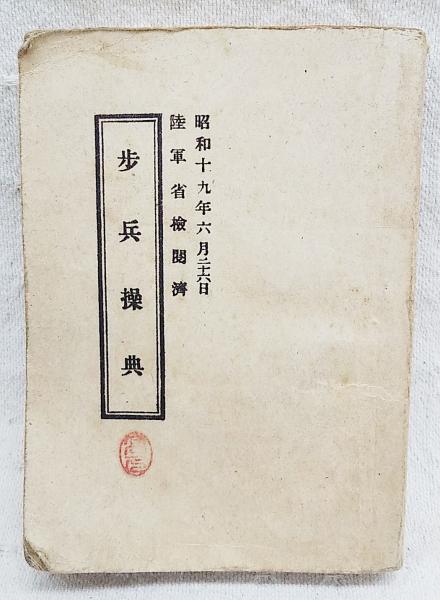 昭和十九年六月二十六日
陸軍省檢閱濟
步兵操典